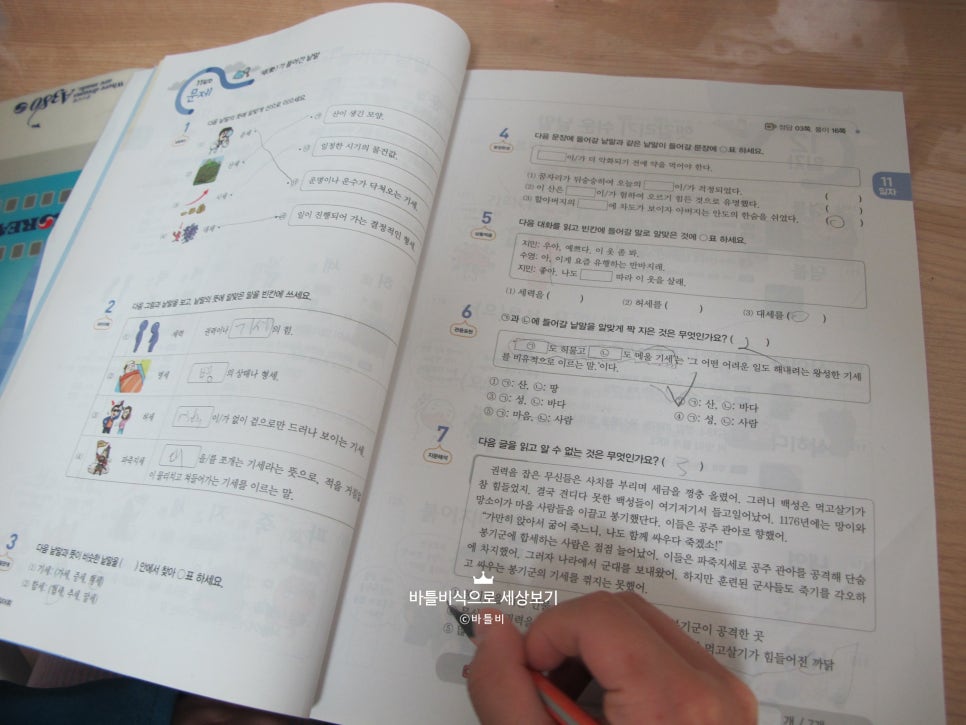 11일차
문제!
'세(勢)'가 들어간 낱말
1
다음 낱말의 뜻에 알맞게 선으로 이으세요.
운세
㉮ 산이 생긴 모양.
산세
㉯ 일정한 시기의 물건값.
시세
㉰ 운명이나 운수가 닥쳐오는 기세.
대세
㉱ 일이 진행되어 가는 결정적인 형세.
2
다음 그림과 낱말을 보고, 낱말의 뜻에 알맞은 말을 빈칸에 쓰세요.
세력 권력이나 기세의 힘.
병세 병의 상태나 형세.
허세 이/가 없이 겉으로만 드러나 보이는 기세.
파죽지세 을/를 쪼개는 기세라는 뜻으로, 적을 거침없이 물리치고 쳐들어가는 기세를 이르는 말.
3
다음 낱말과 뜻이 비슷한 낱말을 ( ) 안에서 찾아 ○표 하세요.
정답 03쪽, 풀이 16쪽
11
일차
4
다음 문장에 들어갈 낱말과 같은 낱말이 들어갈 문장에 ○표 하세요.
이/가 더 악화되기 전에 약을 먹어야 한다.
(1) 꿈자리가 뒤숭숭하여 오늘의 이/가 걱정되었다. ( )
(2) 이 산은 이/가 험하여 오르기 힘든 것으로 유명했다. ( )
(3) 할아버지의 에 차도가 보이자 아버지는 안도의 한숨을 쉬었다. (○)
5
다음 대화를 읽고 빈칸에 들어갈 말로 알맞은 것에 ○표 하세요.
지민: 우아, 예쁘다. 이 옷 좀 봐.
수영: 아, 이게 요즘 유행하는 반바지래.
지민: 좋아, 나도 따라 이 옷을 살래.
(1) 세력을 ( ) (2) 허세를 ( ) (3) 대세를 (○)
6
관용표현
㉠과 ㉡에 들어갈 낱말을 알맞게 짝 지은 것은 무엇인가요? ( 2 )
㉠ 도 허물고 ㉡ 도 메울 기세'는 '그 어떤 어려운 일도 해내려는 왕성한 기세
를 비유적으로 이르는 말.'이다.
① ㉠: 산, ㉡: 땅 ② ㉠: 산, ㉡: 바다
③ ㉠: 성, ㉡: 바다 ④ ㉠: 성, ㉡: 사람
⑤ ㉠: 마음, ㉡: 사람
7
지문해석
다음 글을 읽고 알 수 없는 것은 무엇인가요? ( 3 )
권력을 잡은 무신들은 사치를 부리며 세금을 껑충 올렸어. 그러니 백성은 먹고살기가
참 힘들었지. 결국 견디다 못한 백성들이 여기저기서 들고일어났어. 1176년에는 망이와
망소이가 마을 사람들을 이끌고 봉기했단다. 이들은 공주 관아로 향했어.
"가만히 앉아서 굶어 죽느니, 나도 함께 싸우다 죽겠소!"
봉기군에 합세하는 사람은 점점 늘어났어. 이들은 파죽지세로 공주 관아를 공격해 단숨
에 차지했어. 그러자 나라에서 군대를 보내왔어. 하지만 훈련된 군사들도 죽기를 각오하
고 싸우는 봉기군의 기세를 꺾지는 못했어.
봉기군이 공격한 곳
먹고살기가 힘들어진 까닭
바틀비식으로 세상보기
ⓒ바틀비
개 / 7개
A380
KOREA